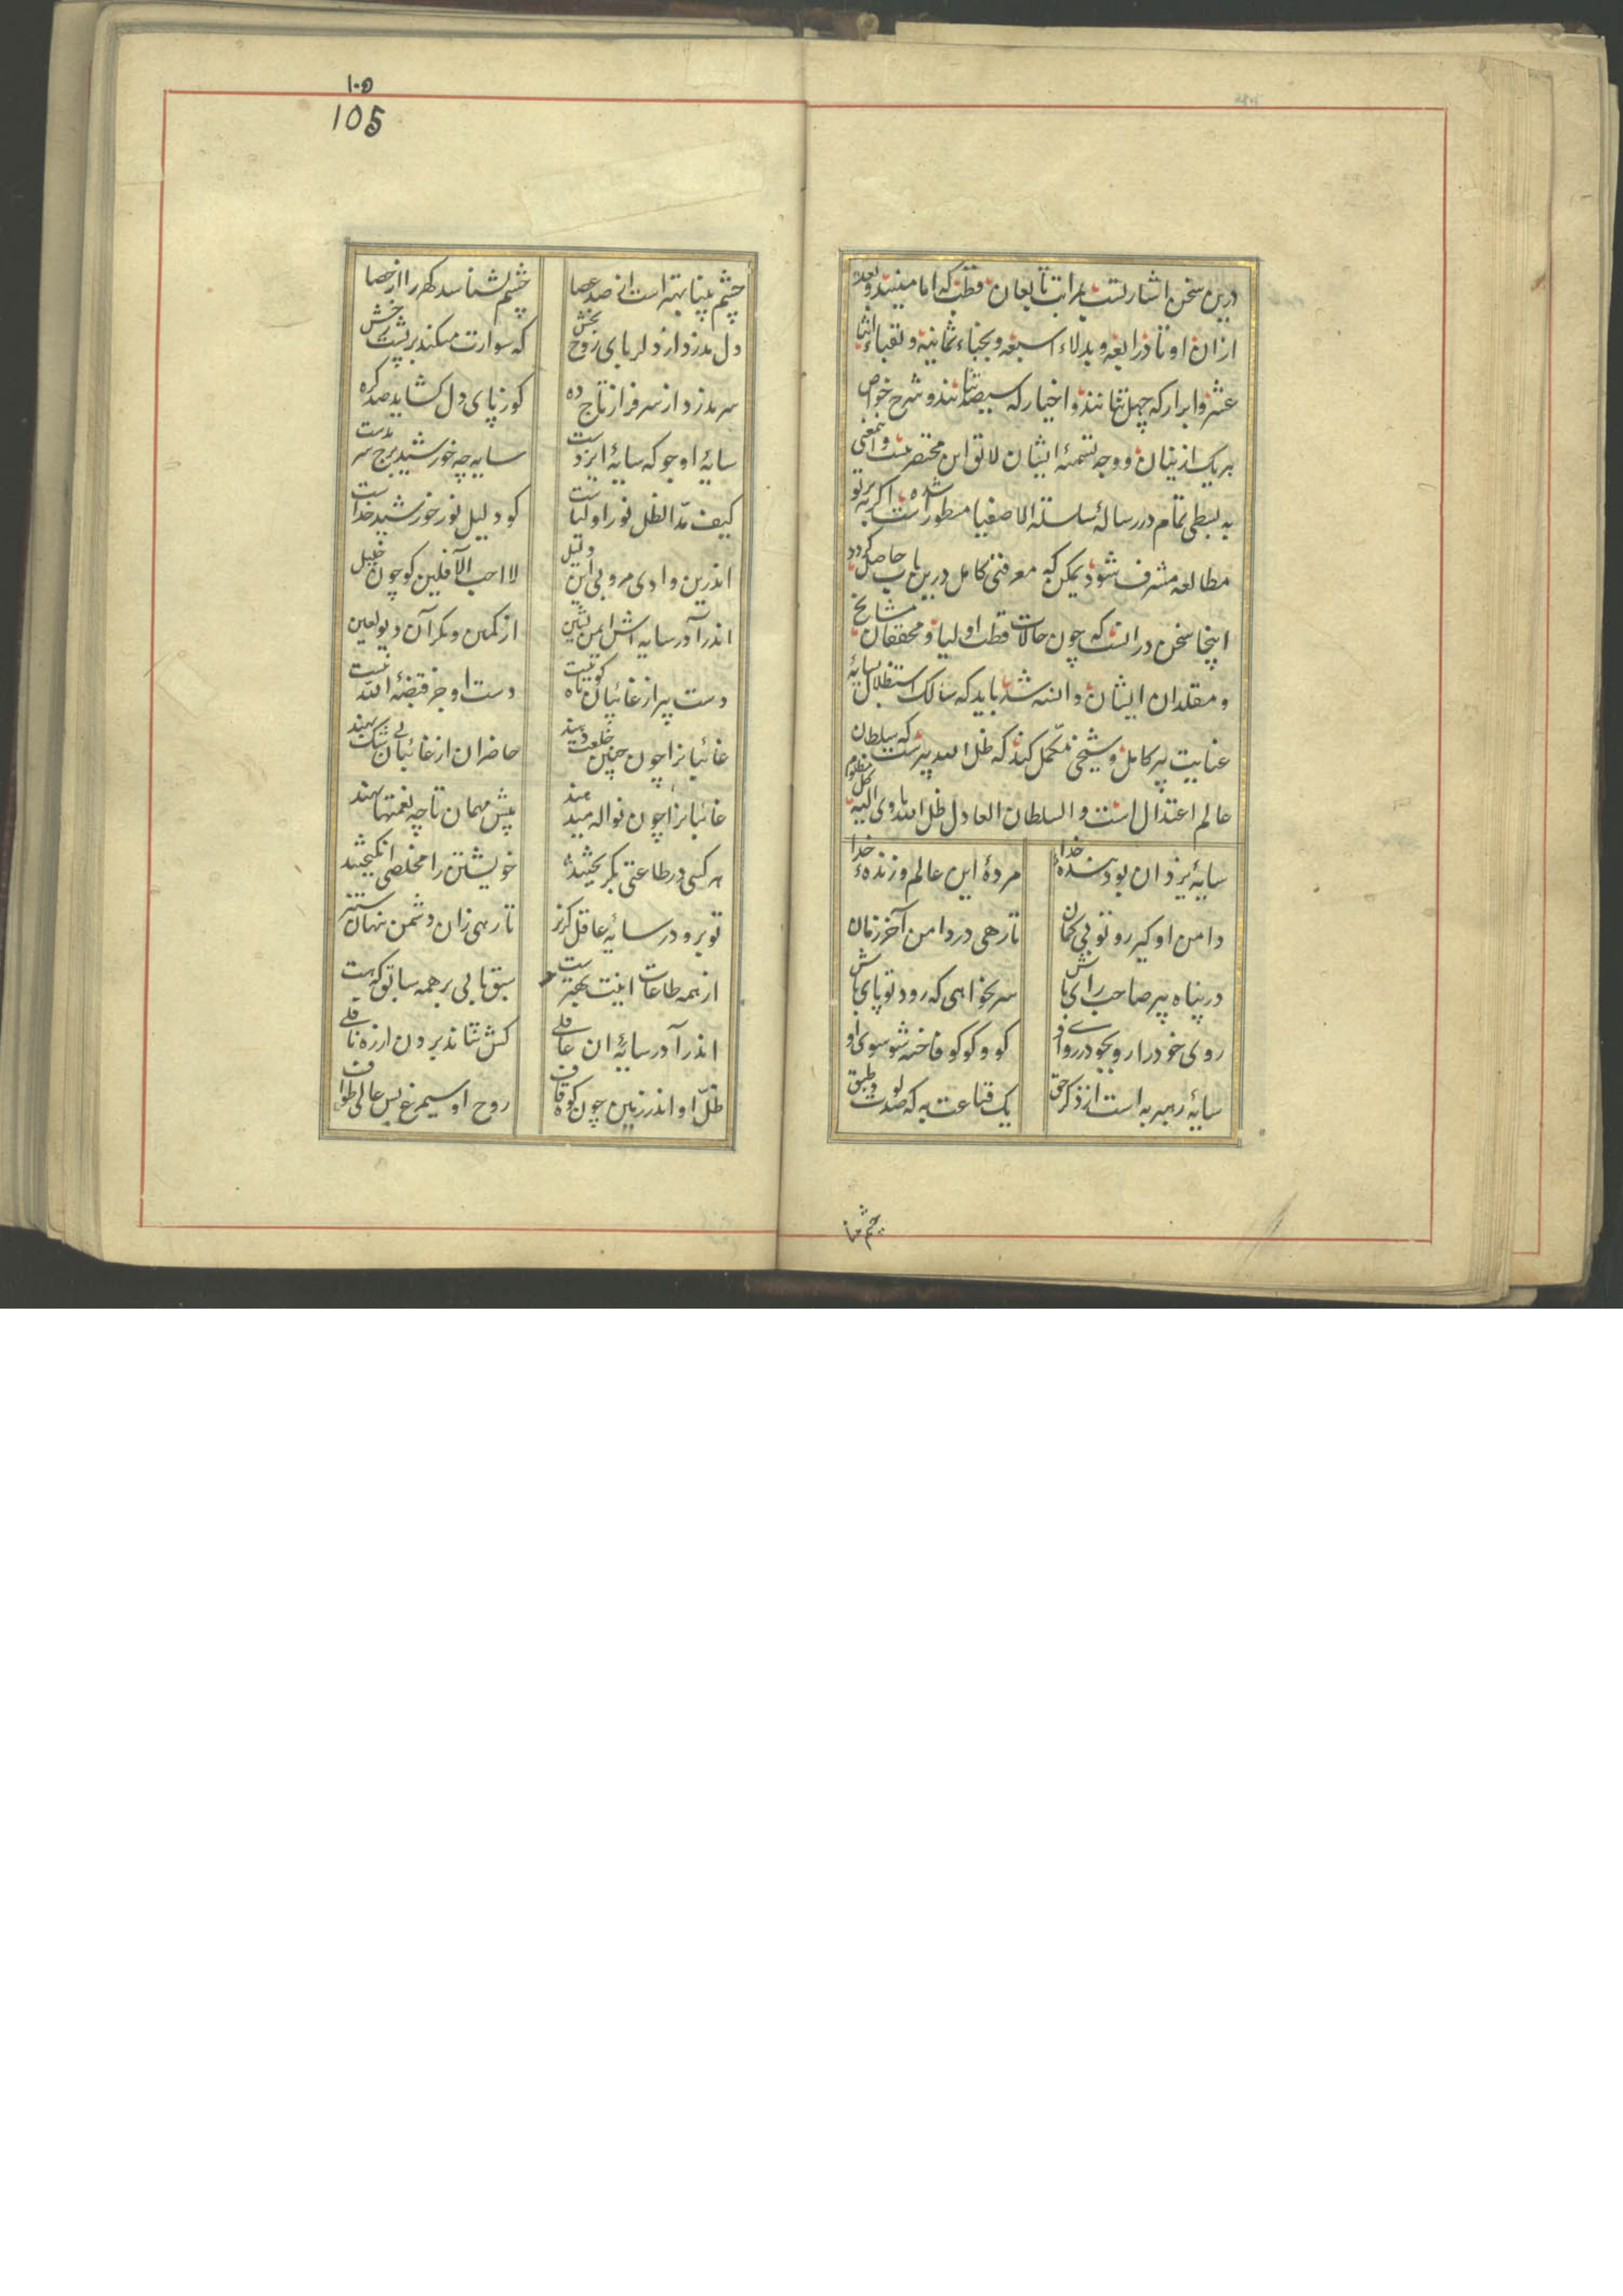 درین سخن اشارتست بمراتب تابعان قطب که امامینند و بعد
ازان اوتاد اربعه و بدلاء سبعه و نجباء ثمانیه و نقباء اثنا
عشر و ابرار که چهل تنانند و اخیار که سیصد تنانند و شرح خواص
هریک ازینان و وجه تسمیهٔ ایشان لائق این مختصر نیست و این معنی
به بسطی تمام در رسالهٔ سلسلة الاصفیا مسطور شده است اگر به پرتو
مطالعه مشرف شود یمکن که معرفتی کامل درین باب حاصل گردد
اینجا سخن درانست که چون حالات قطب اولیا و محققان مشایخ
و مقلدان ایشان دانسته شد باید که سالک استظلال بسایهٔ
عنایت پیر کامل و شیخی مکمل کند که ظل الله پیرست که سلطان
عالم اعتدال است و السلطان العادل ظل الله یاوی الیه کل مظلوم
سایهٔ یزدان بود بندهٔ خدا مردهٔ این عالم و زندهٔ خدا
دامن او گیر رو تو بی گمان تا رهی در دامن آخر زمان
در پناه پیر صاحب رای باش سر بخواهی که رود تو پای باش
روی خود را رو بجو در روی او کو و کوکو فاخته شو سوی او
سایهٔ رهبر به است از ذکر حق یک قناعت به که صد لوت و طبق
چشم بینا
۱۰۵
105
چشم بینا بهتر است از صد عصا چشم بشناسد گهر را از حصا
دل مدزد از دلربای روح بخش که سوارت میکند بر پشت رخش
سر مدزد از سر فراز تاج ده کو ز پای دل گشاید صد گره
سایهٔ او جو که سایهٔ ایزدست سایه چه خورشید برج سرمدست
کیف مد الظل نور اولیاست کو دلیل نور خورشید خداست
اندرین وادی مرو بی این دلیل لا احب الآفلین گو چون خلیل
اندر آ در سایه اش ایمن نشین از کمین و مکر آن دیو لعین
دست پیر از غائبان کوتاه نیست دست او جز قبضهٔ الله نیست
غائبانرا چون چنین خلعت دهند حاضران از غائبان بی شک بهند
غائبانرا چون نواله میدهند پیش مهمان تا چه نعمتها نهند
هر کسی در طاعتی بگریختند خویشتن را مخلصی انگیختند
تو برو در سایهٔ عاقل گریز تا رهی زان دشمن پنهان ستیز
از همه طاعات اینت بهترست سبق یابی بر همه سابق که هست
اندر آ در سایهٔ ان عاقلی کش نتاند برد از ره ناقلی
ظل او اندر زمین چون کوه قاف روح او سیمرغ بس عالی طواف